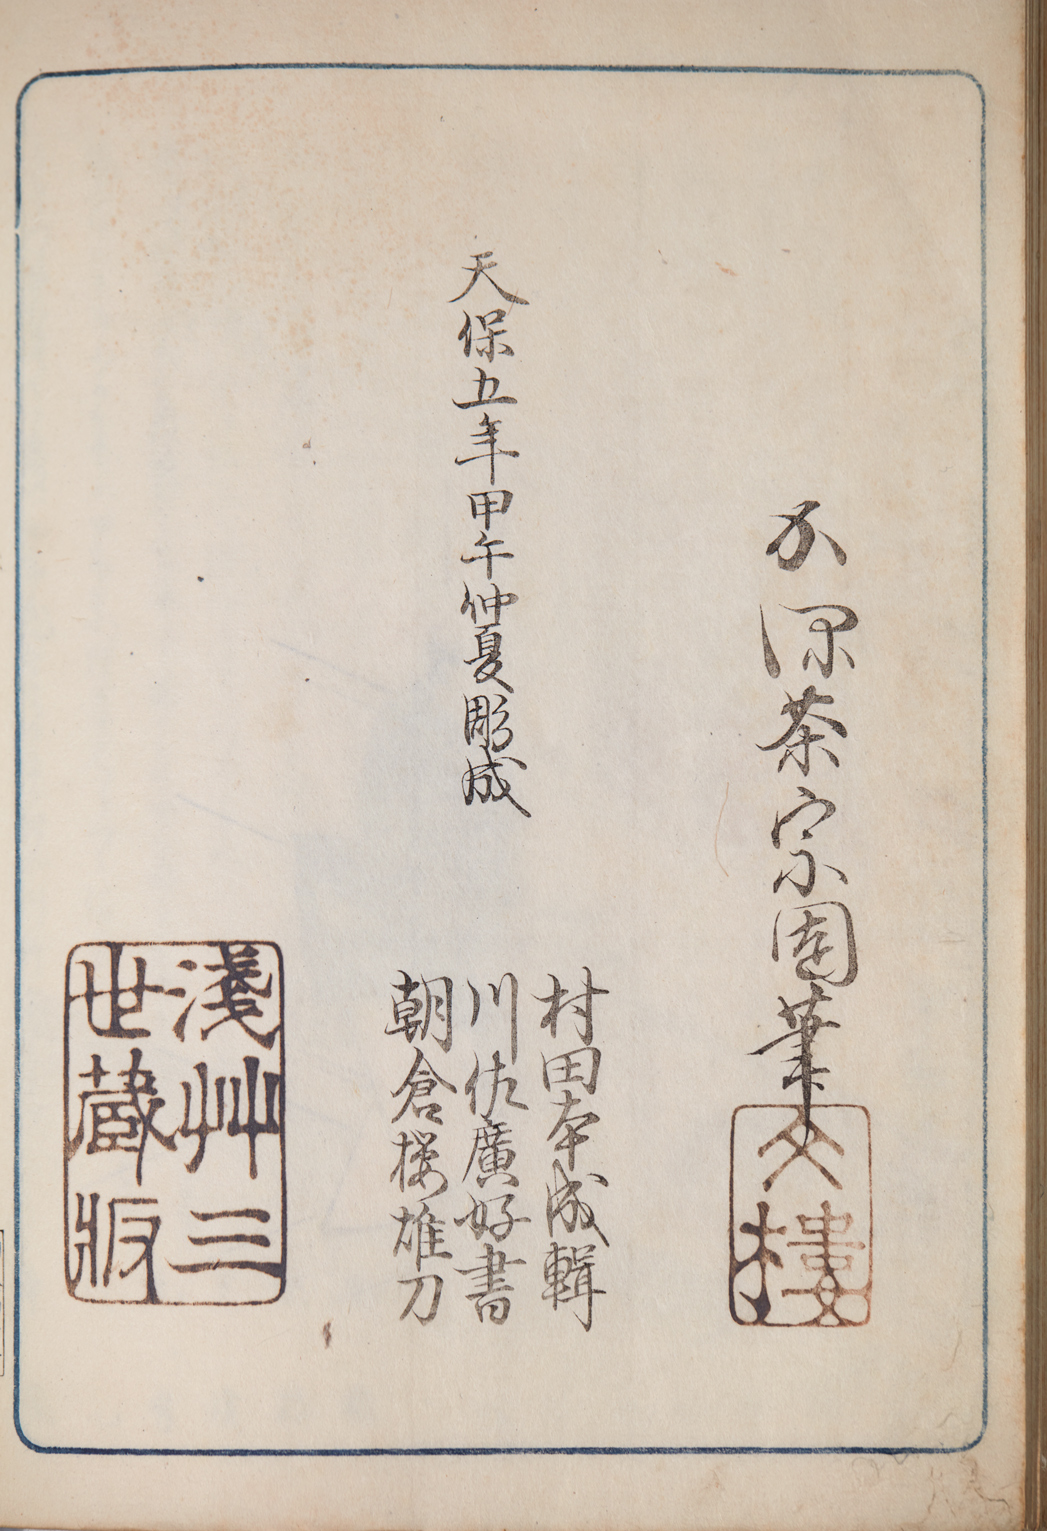 不深茶宗園筆
文樓
天保五年甲午仲夏彫成
村田本成輯
川佐廣好書
朝倉桜雄刀
淺艸三
世蔵版